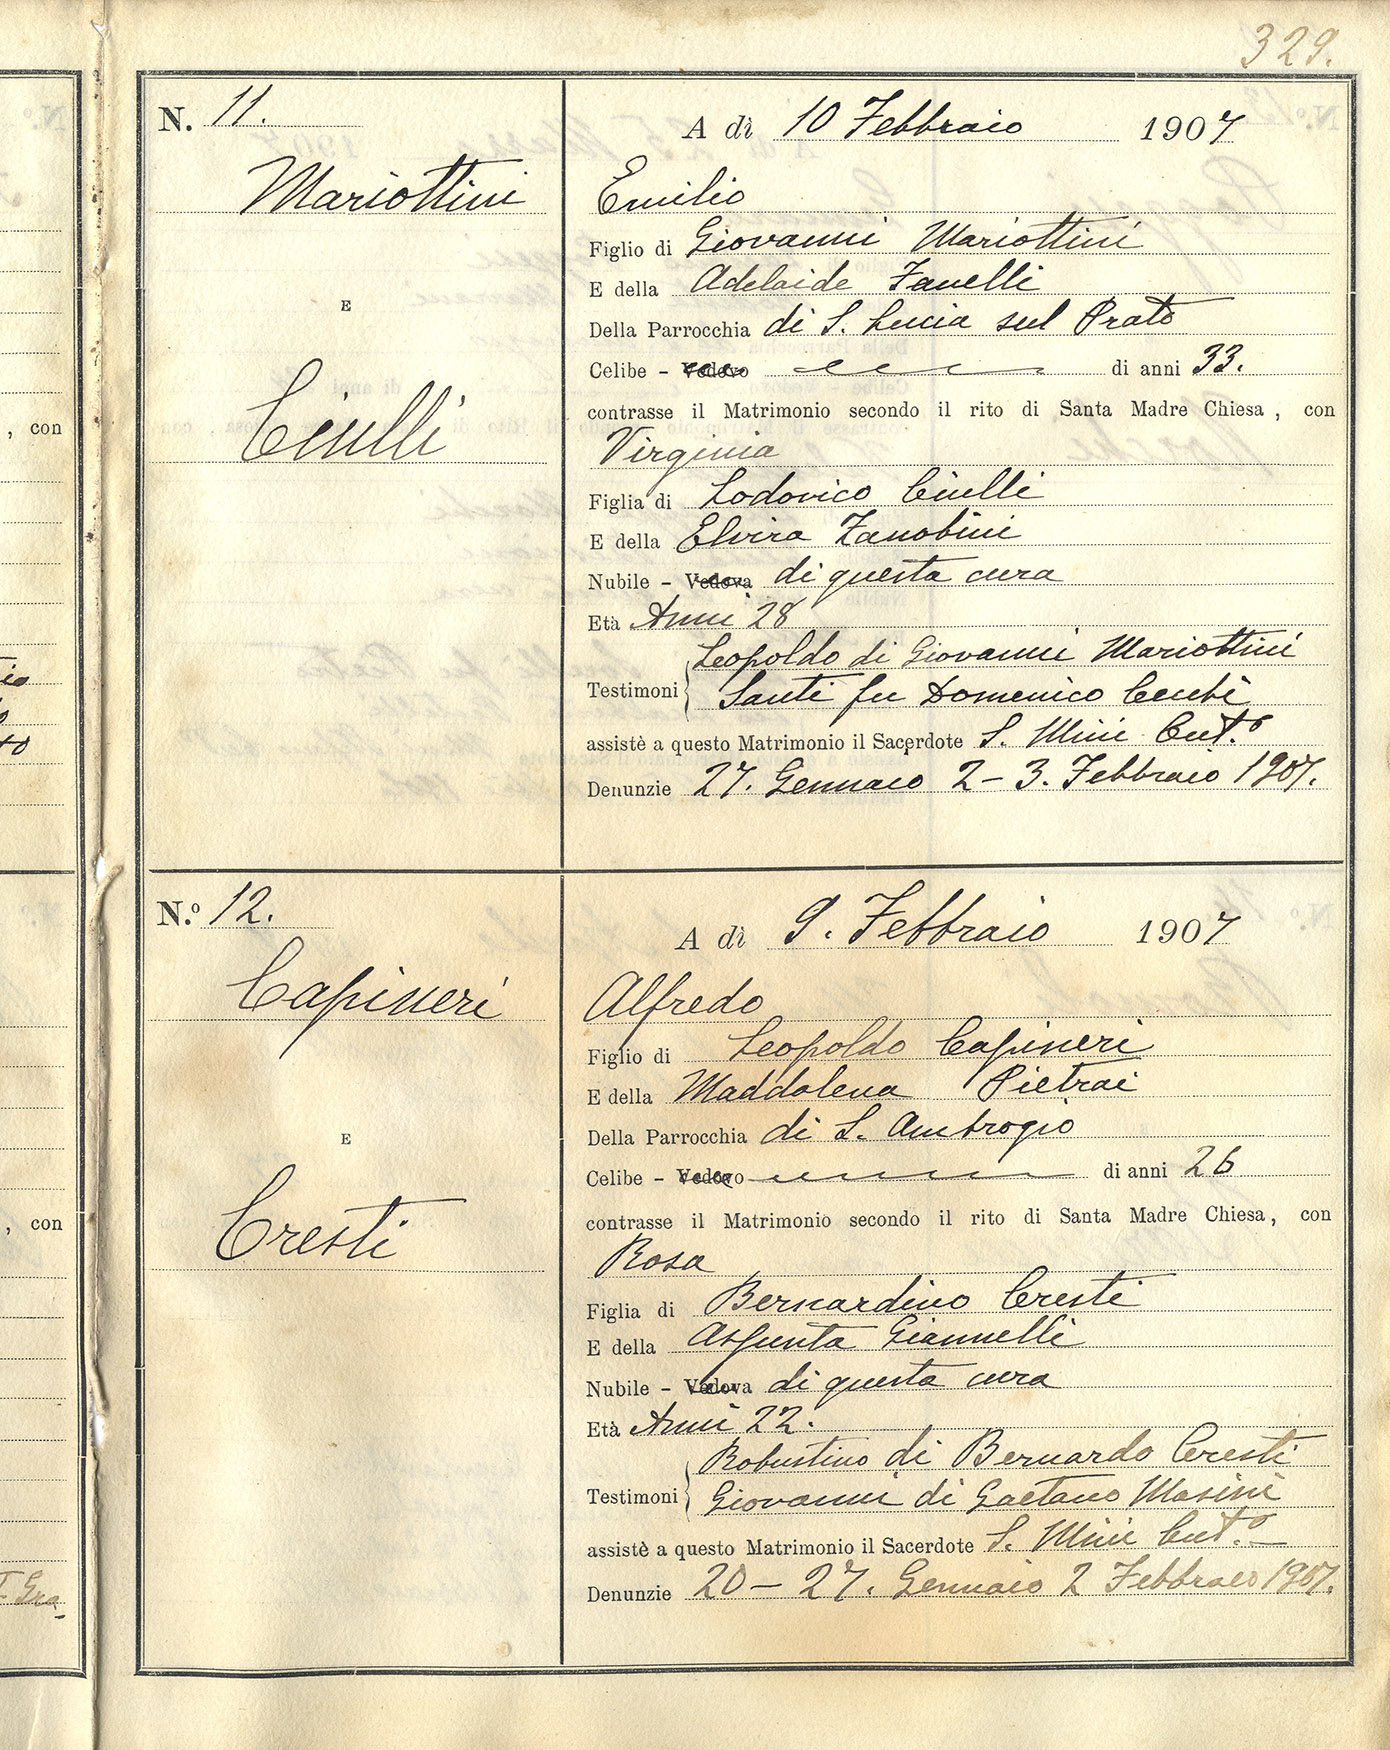 329.
, con
, con
N. 11.
Mariottini
E
Ciulli
A dì 10 Febbraio 1907
Emilio
Figlio di Giovanni Mariottini
E della Adelaide Fanelli
Della Parrocchia di S. Lucia sul Prato
Celibe - Vedovo di anni 33.
contrasse il Matrimonio secondo il rito di Santa Madre Chiesa, con
Virginia
Figlia di Lodovico Ciulli
E della Elvira Zanobini
Nubile - Vedova di questa cura
Età Anni 28
Leopoldo di Giovanni Mariottini
Testimoni
Santi fu Domenico
assistè a questo Matrimonio il Sacerdote S. Mini Cut.º
Denunzie 27. Gennaio 2 - 3. Febbraio 1907.
N.º 12.
Capineri
E
Cresti
A dì 9. Febbraio 1907
Alfredo
Figlio di Leopoldo Capineri
E della Maddalena Pietrai
Della Parrocchia di S. Ambrogio
Celibe - Vedovo di anni 26
contrasse il Matrimonio secondo il rito di Santa Madre Chiesa, con
Rosa
Figlia di Bernardino Cresti
E della Assunta Giannelli
Nubile - Vedova di questa cura
Età Anni 22.
Robustino di Bernardo Cresti
Testimoni
Giovanni di Gaetano Masini
assistè a questo Matrimonio il Sacerdote S. Mini Cut.º
Denunzie 20 - 27. Gennaio 2 Febbraio 1907.